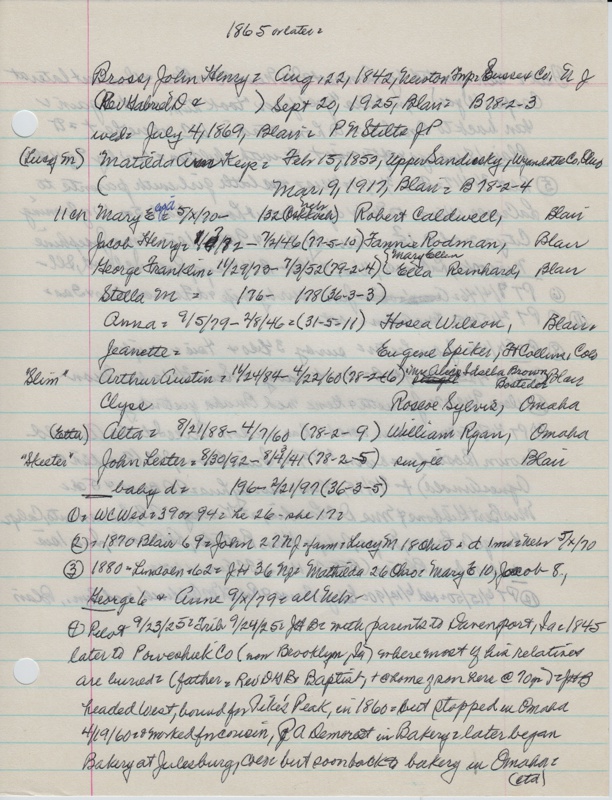 1865 or later =
Bross, John Henry = Aug. 22, 1842, Newton Twp = Sussex Co, N J
(Rev D & ) Sept 20, 1925, Blair = B78-2-3
wed = July 4, 1869, Blair = P N Stilts J P
(Lucy M) Matilda Ann = Feb 15, 1852, Upper Sandusky, Wyandotte Co. Ohio
( Mar. 9, 1917, Blair = B 78-2-4
11 ch Mary E 5/x/70 - 132 Robert Caldwell, Blair
Jacob Henry = 72 - 7/2/46 (77-5-10) Fannie Rodman, Blair
George Franklin = 11/29/70 - 7/3/52 (79-2-4) { Mary Ellen Ella Reinhard, Blair
Stella M = 176 - 178 (36-3-3)
Anna = 9/5/79 - 2/8/46 = (31-5-11) Hosea Wilson, Blair
Jeanette = Eugene Spiker, Ft Collins, Colo
"Slim" Arthur Austin = 11/24/84 - 4/22/60 (78-2-6) Mrs Alice Sheba Brown Bostedor Blair
Clyse Roscoe Sylvis, Omaha
(Etta) Alta = 8/21/88 - 4/7/60 (78-2-9) William Ryan, Omaha
"Skeeter" John Lester = 8/30/92 - 8/ /41 (78-2-5) single Blair
baby d = 196 - 2/21/97 (36-3-5)
① = WC Wed = 39 or 94 = he 26 - she 17 =
② = 1870 Blair 69 = John 27 NJ = farm = Lucy M 18 Ohio = d 1 mo = Nebr 5/x/70
③ 1880 = Lincoln = 62 = J H 36 NJ = Mathilda 26 Ohio = Mary E 10, Jacob 8,
George 6 & Anne 9/x/79 = all Nebr -
④ Pilot 9/23/25 = Trib 9/24/25 = JHB = with parents to Davenport, Ia = 1845
later to Poweshiek Co (now Brooklyn, Ia) where most of his relatives
are buried = (father = Rev D H B = Baptist, + @ home of son here @ 70 ) = JHB
headed West, bound for Pike's Peak, in 1860 = but stopped in Omaha
4/19/60 = & worked for cousin, J A Demorest in Bakery = later began
Bakery at Julesburg, = but soon back to bakery in Omaha =
(etd)